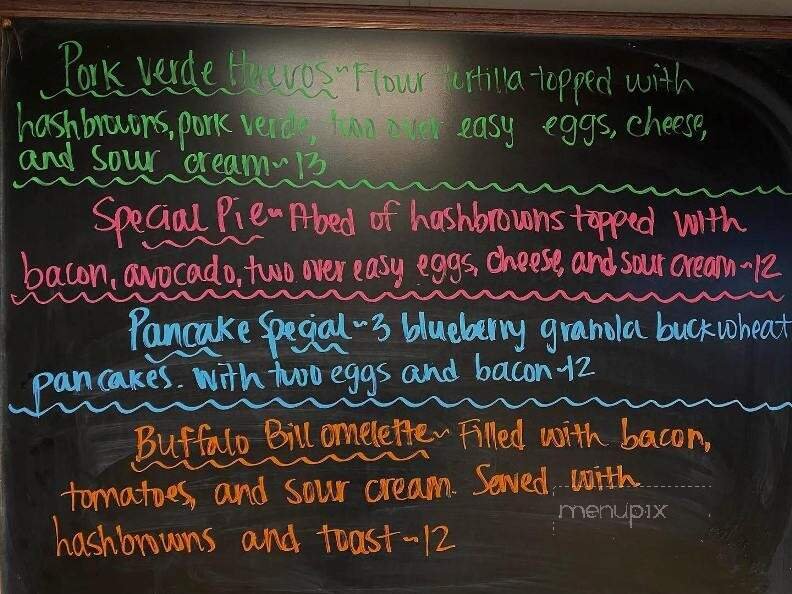 Pork Verde Huevos~Flour tortilla topped with
hashbrowns, pork verde, two over easy eggs, cheese,
and sour cream~13
Special Pie~A bed of hashbrowns topped with
bacon, avocado, two over easy eggs, cheese, and sour cream~12
Pancake Special~3 blueberry granola buckwheat
pancakes. With two eggs and bacon~12
Buffalo Bill omelette~ Filled with bacon,
tomatoes, and sour cream. Served with
hashbrowns and toast~12
menupix